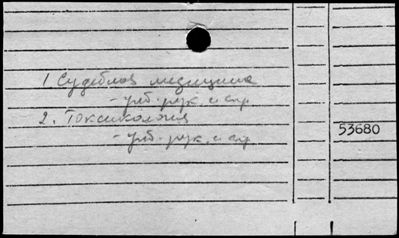 1. Судебная медицина
- учб. рук. и спр.
2. Токсикология
- учб. рук. и спр.
53680